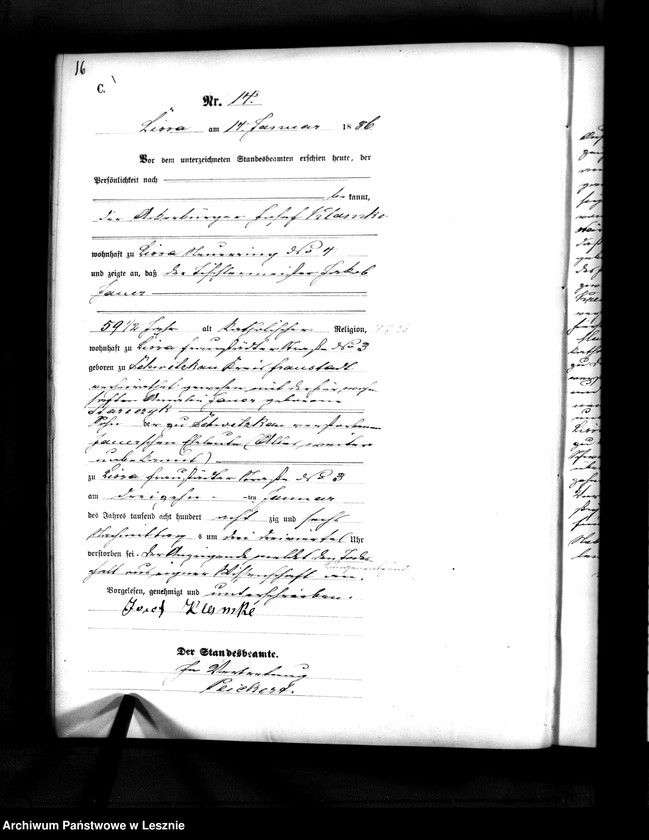 16
C.
Nr. 14.
Lissa am 14. Januar 1886
Vor dem unterzeichneten Standesbeamten erschien heute, der
Persönlichkeit nach
be kannt,
der Ackerbürger Josef Klemke
wohnhaft zu Lissa Neuerring No 4
und zeigte an, daß der Tischlermeister Jakob
Jauer
59 1/2 Jahr alt katholischer Religion,
wohnhaft zu Lissa Fraustädter Straße No 3
geboren zu Schwetzkau Kreis Fraustadt
verheirathet gewesen mit der hier wohn-
haften Amalie Jauer geborene
Starczyk
Sohn der zu Schwetzkau verstorbenen
Jauerschen Eheleute (Alles weitere
unbekannt)
zu Lissa Fraustädter Straße No 3
am dreizehn ten Januar
des Jahres tausend acht hundert acht zig und sechs
Nachmittags um drei dreiviertel Uhr
verstorben sei. Der Anzeigende meldet den Todes-
fall aus eigner Wissenschaft an.
Vorgelesen, genehmigt und unterschrieben.
Josef Klemke
Der Standesbeamte.
In Vertretung
Peickert.
Archiwum Państwowe w Lesznie